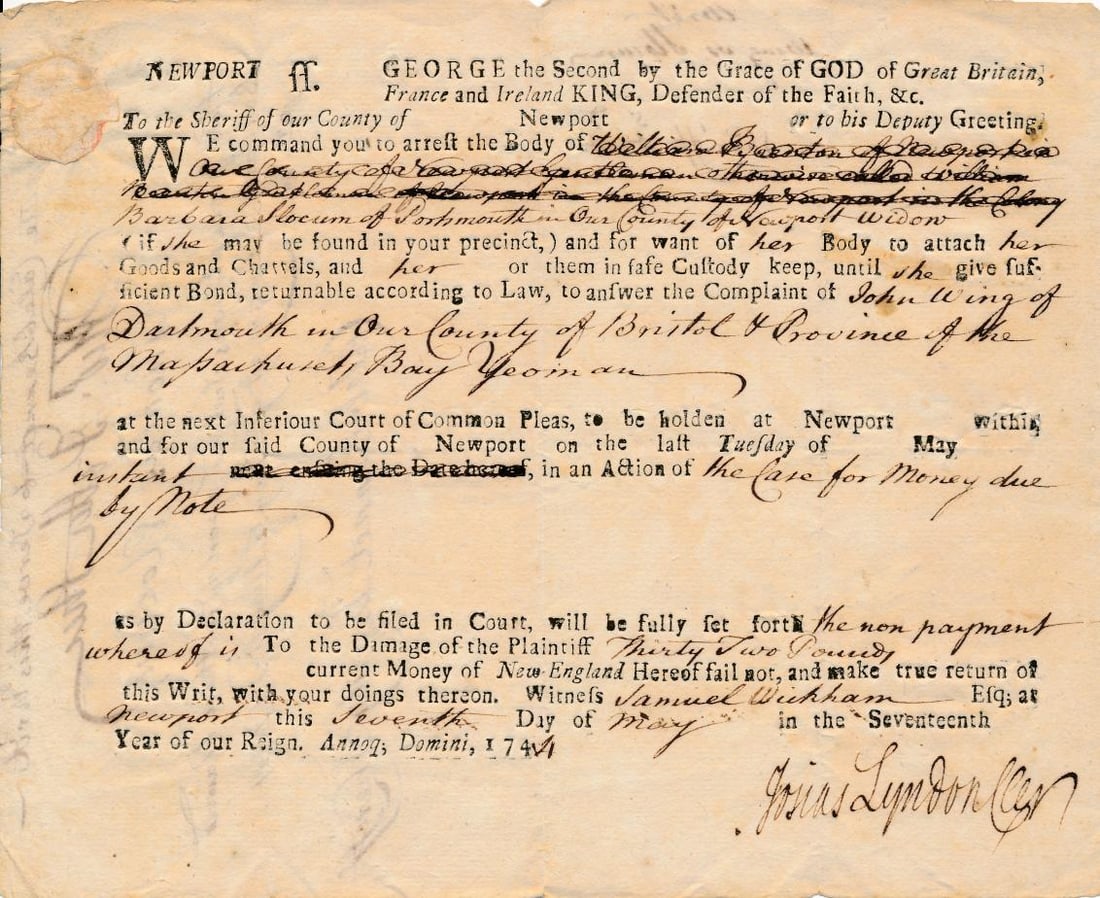 NEWPORT ſſ. GEORGE the Second by the Grace of GOD of Great Britain,
France and Ireland KING, Defender of the Faith, &c.
To the Sheriff of our County of Newport or to his Deputy Greeting.
WE command you to arreſt the Body of William of Newport in
Our County of Newport Gentleman otherwise called William
of Newport in the County of Newport in the Colony
Barbara Slocum of Portsmouth in Our County of Newport Widow
(if she may be found in your precinct,) and for want of her Body to attach her
Goods and Chattels, and her or them in ſafe Cuſtody keep, until she give ſuf-
ficient Bond, returnable according to Law, to anſwer the Complaint of John Wing of
Dartmouth in Our County of Bristol & Province of the
Maſsachusets Bay Yeoman
at the next Inferiour Court of Common Pleas, to be holden at Newport within
and for our ſaid County of Newport on the laſt Tueſday of May
instant next enſuing the Date hereof, in an Action of the Case for Money due
by Note
as by Declaration to be filed in Court, will be fully ſet forth the non payment
whereof is To the Damage of the Plaintiff Thirty Two Pounds
current Money of New-England Hereof fail not, and make true return of
this Writ, with your doings thereon. Witneſs Samuel Wickham Eſq; at
Newport this Seventh Day of May in the Seventeenth
Year of our Reign. Annoq; Domini, 1744
Josias Lyndon Cler